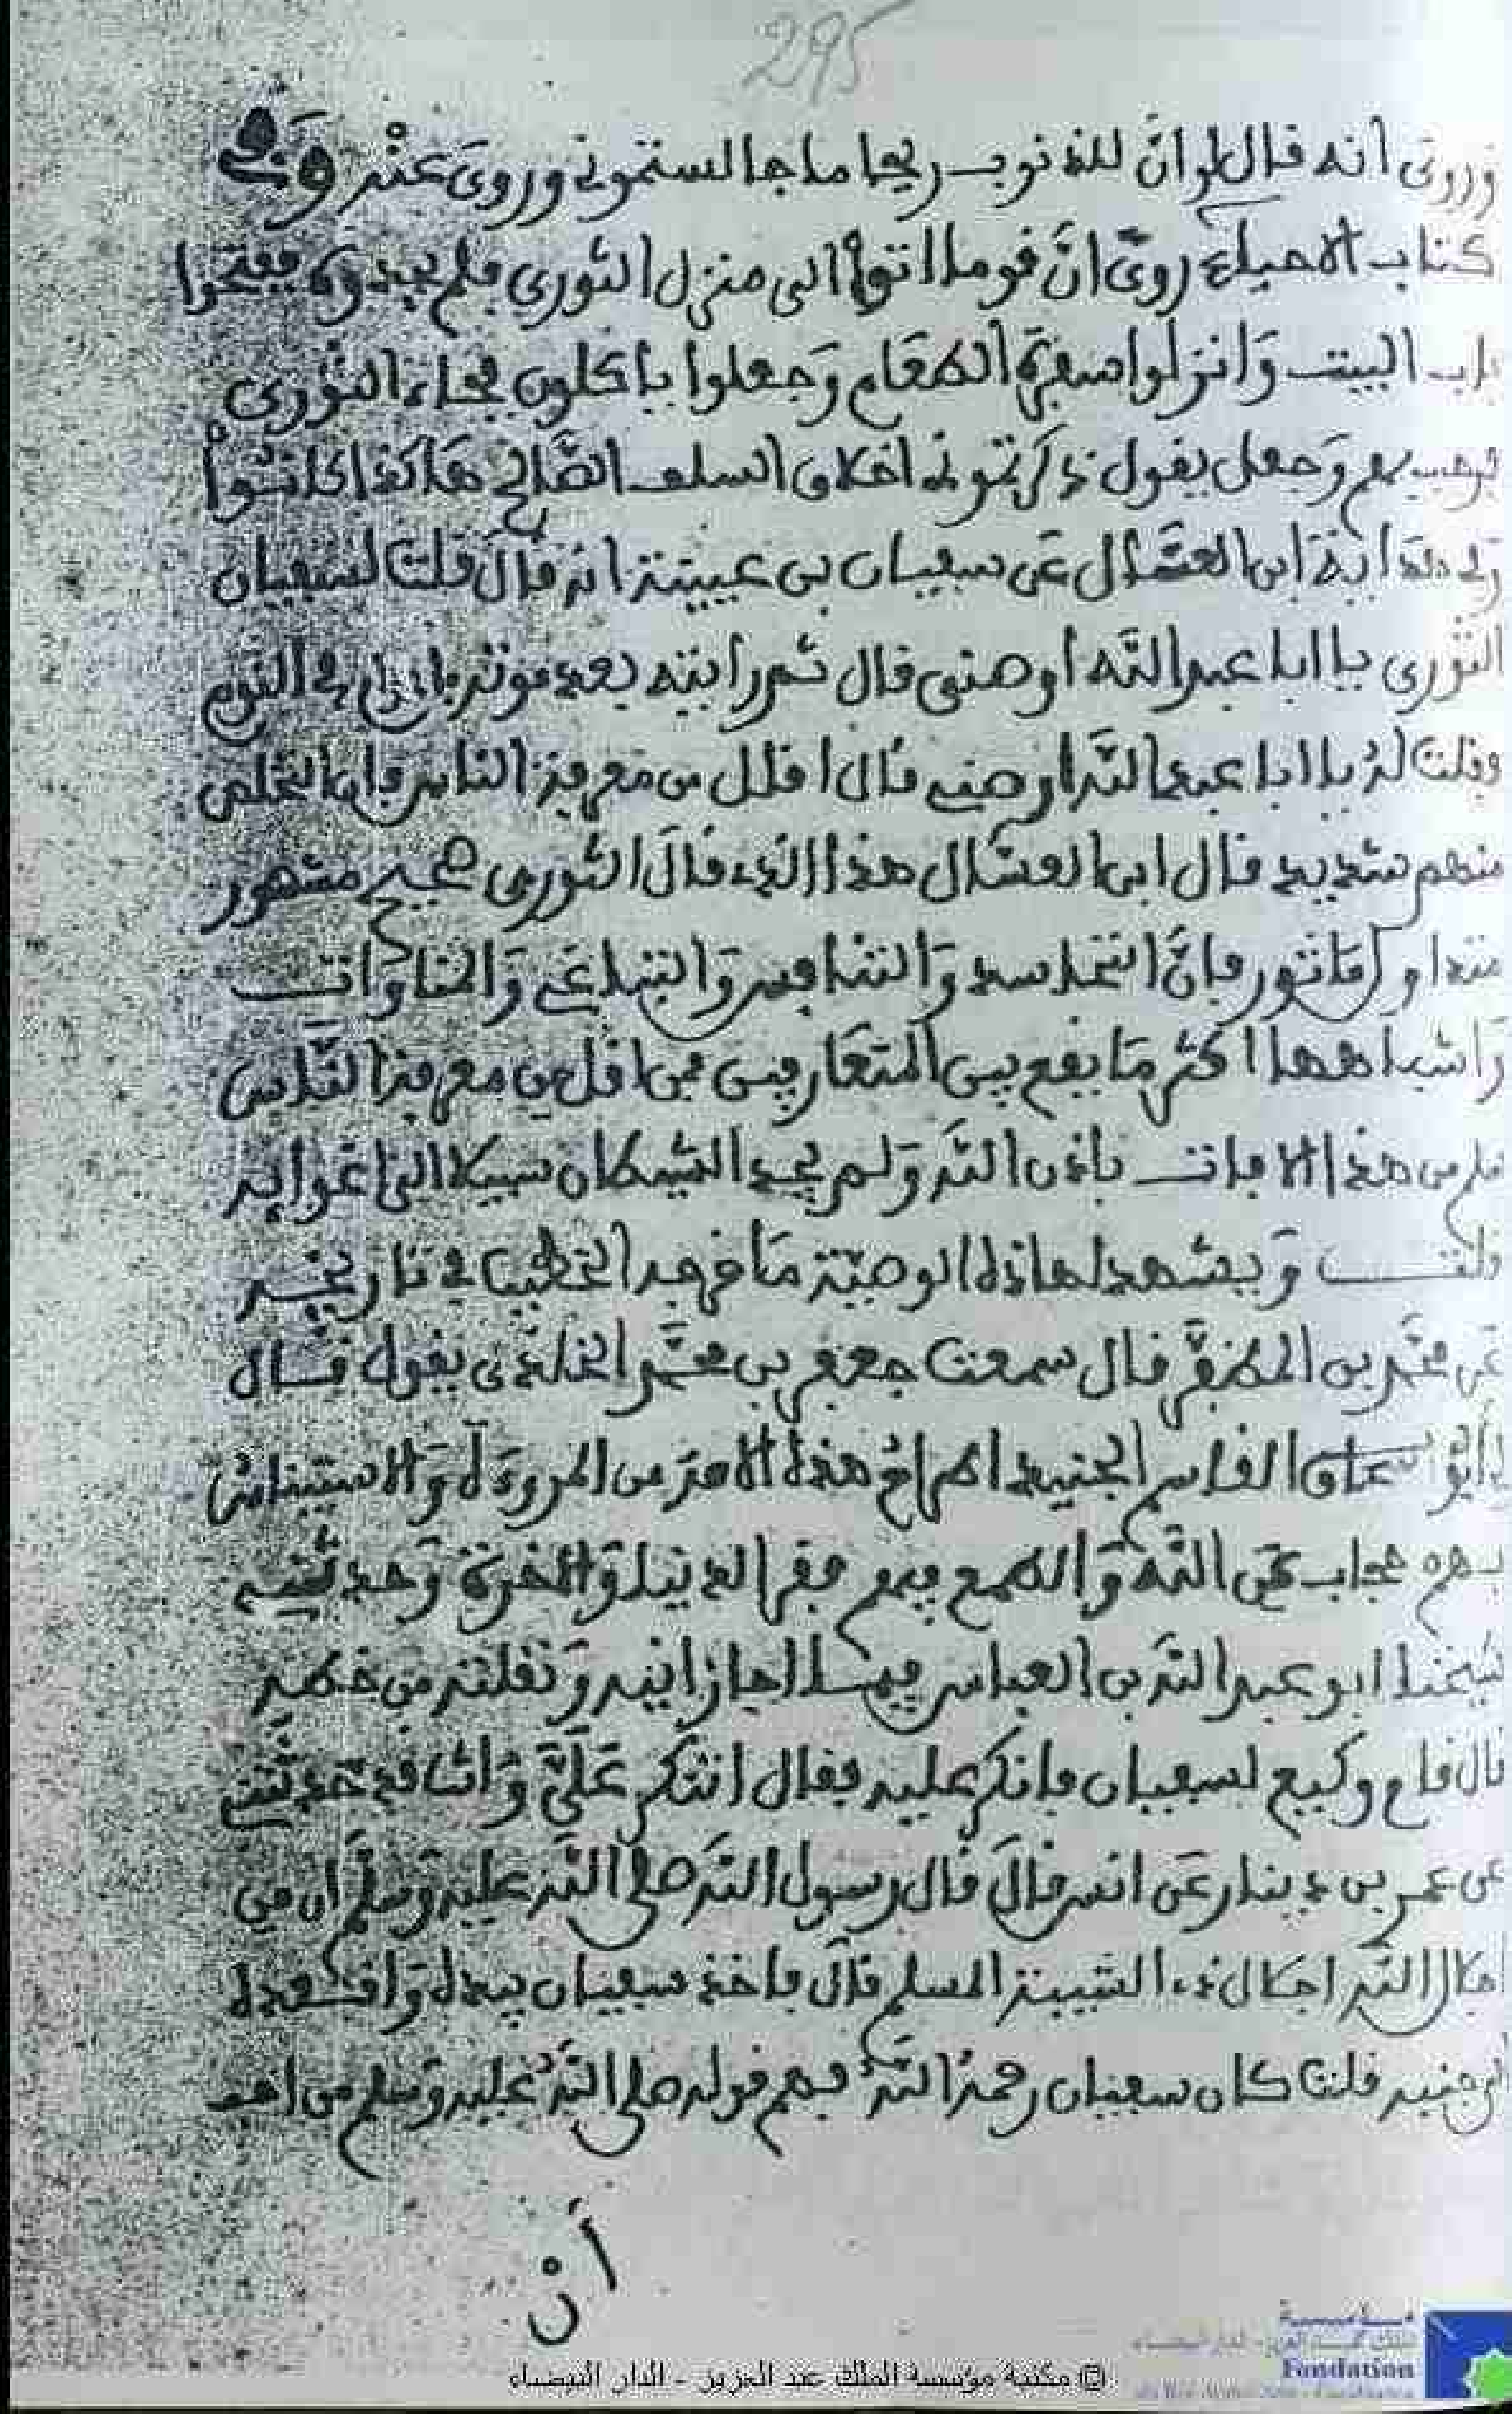 295
وروي انه قال لو انَّ للذنوب ريحا ما جالستموني وروي عنه وَفي
كتاب الاحياء رويَ انَّ قوما اتوا الى منزل الثوري فلم يجدوه ففتحوا
باب البيت وَانزلوا سفرة الطعَام وَجعلوا ياكلون فجاء الثوري
وَجعل يقول ذكرتموني اخلاق السلف الصَّالح هَاكذا كانوا
ابن العسَّال عَن سفيان بن عيينة انه قال قلت لسفيان
الثوري يا ابا عبد اللَّه اوصني قال ثم رايته بعد موته في النوم
وقلت لهُ يا ابا عبد اللَّه اوصني قال اقلل من معرفة الناس فان التخلص
منهم شديد قال ابن العسَّال هذا الذي قالَ الثوري صحيح مشهور
فانَّ التحاسد وَالتنافس وَالتباغي وَالمناوات
وَاشباهها اكثر مَا يقع بين المتعَارفين فمن اقل من معرفة النَّاس
سلم من هذه الافات باذن اللَّه وَلم يجد الشيطان سبيلا الى اغوايه
قلت وَيشهد لهاذه الوصيّة مَا خرجه الخطيب في تاريخه
عَن محَمد بن المظفر قال سمعت جعفر بن محَمَّد الخلدي يقول قال
القاسم الجنيد هذه الامة من المروءة وَالاستيناس
بهم حجاب عَن اللَّه وَالطمع فيهم فقر الدنيا وَالاخرة وَحدثني
شيخنا ابو عبد اللَّه بن العباس فيما اجازنيه وَنقلته من خطه
قال قام وكيع لسفيان فانكر عليه فقال اتنكر عَليَّ وَانت قد حَدثتني
عن عمر بن دينار عَن انس قالَ قال رسول اللَّه صلى اللَّه عليه وَسلم ان من
اجلال اللَّه اجلال ذي الشيبة المسلم قالَ فاخذ سفيان بيده وَاقعده
الى جنبه قلت كان سفيان رحمهُ اللَّه فهم قوله صلى اللَّه عليه وَسلم من احب
أنْ
مؤسسة
Fondation
© مكتبة مؤسسة الملك عبد العزيز - الدار البيضاء